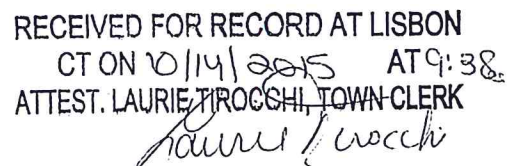 RECEIVED FOR RECORD AT LISBON
CT ON 10/14/2015 AT 9:38
ATTEST. LAURIE TIROCCHI, TOWN CLERK
Laurie Tirocchi